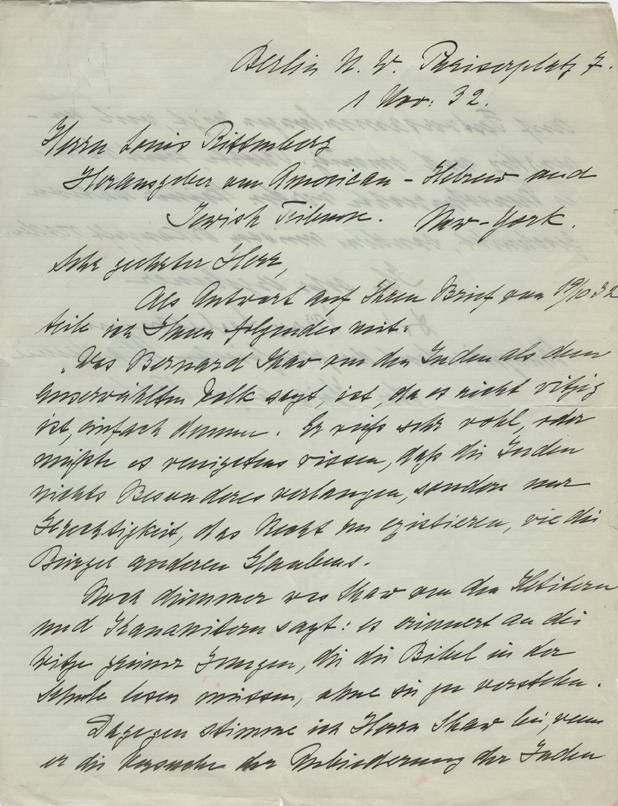 Berlin N. W. Pariserplatz 7.
1 Nov: 32.
Herrn Louis Rittenberg
Herausgeber von American-Hebrew and
Jewish Tribune. New-York.
Sehr geehrter Herr,
Als Antwort auf Ihren Brief von 19/10 32
teile ich Ihnen folgendes mit:
Was Bernard Shaw von den Juden als dem
auserwählten Volk sagt, ist, da es nicht witzig
ist, einfach dumm. Er weiß sehr wohl, oder
müßte es wenigstens wissen, daß die Juden
nichts Besonderes verlangen, sondern nur
Gerechtigkeit, das Recht zu existieren, wie die
Bürger anderen Glaubens.
Noch dümmer was Shaw von den Hetitern
und Kananitern sagt: es erinnert an die
Witze Jungen, die die Bibel in der
Schule lesen müssen, ohne sie zu verstehen.
Dagegen stimme ich Herrn Shaw bei, wenn
er die Versuche der Anbiederung der Juden